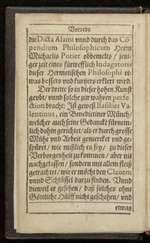 Vorrede
zu Dicta Alani vnnd durch das Cō-
pendium Philosophicum Herrn
Michaelis Potier obbemelts / jetzi-
ger zeit eines fürtrefflich Indagatoris
dieser Hermetischen Philosophi et-
was bessers vnd kürtzers erklert wird.
Der dritte so in dieser hohen Kunst
geübt / vnnd solche zur wahren perfe-
ction bracht: Ist gewest Basilius Va-
lentinus, ein Benedictiner Münch /
welcher auch seine Gedanck fürnem-
lich dahin gerichtet / als er durch grosse
Mühe vnd Arbeit gemercket vnd ge-
spüret / wie mißlich es sey / zu dieser
Verborgenheit zu kommen / aber nit
nachgelassen / sondern mit allem fleiß
getrachtet / wie er möcht den Clauem
vnnd Schlüssel darzu finden. Vnnd
dieweil er gesehen / daß solches ohne
Göttliche Hülff nicht geschehen / vnd
etwas